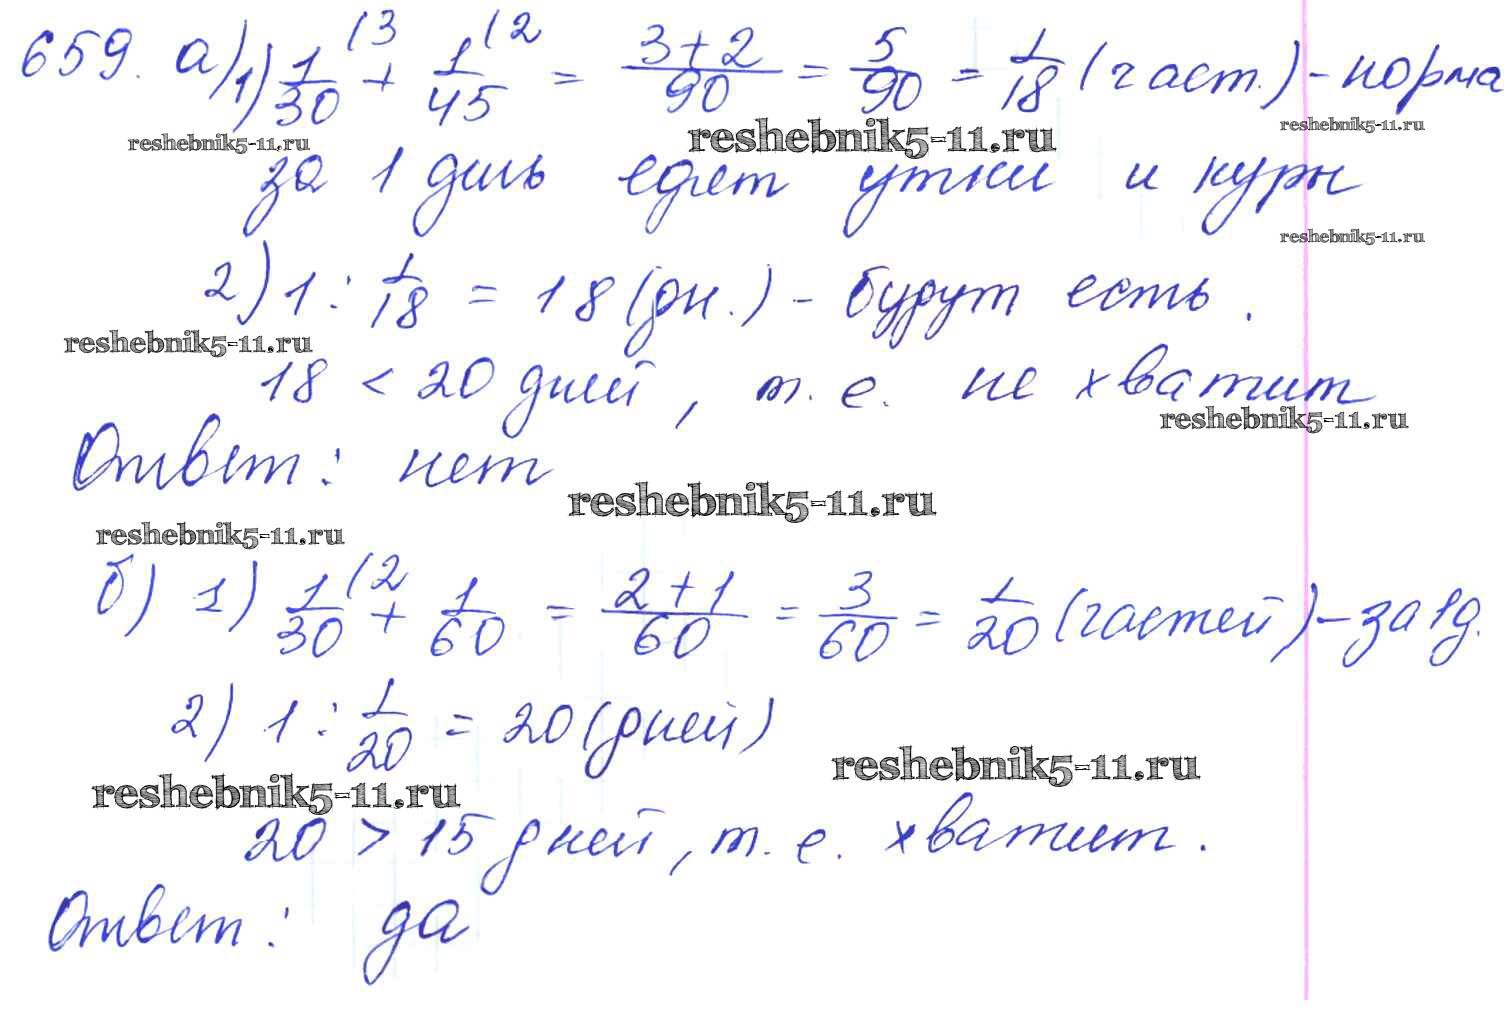 659. а) 1) 1/30 (3 + 1/45 (2 = 3+2/90 = 5/90 = 1/18 (част.) - норма
reshebnik5-11.ru reshebnik5-11.ru reshebnik5-11.ru
за 1 день едят утки и куры
reshebnik5-11.ru
2) 1 : 1/18 = 18 (дн.) - будут есть.
reshebnik5-11.ru
18 < 20 дней, т. е. не хватит
reshebnik5-11.ru
Ответ: нет
reshebnik5-11.ru
reshebnik5-11.ru
б) 1) 1/30 (2 + 1/60 = 2+1/60 = 3/60 = 1/20 (частей) - за 1 д.
2) 1 : 1/20 = 20 (дней)
reshebnik5-11.ru
reshebnik5-11.ru
20 > 15 дней, т. е. хватит.
Ответ: да